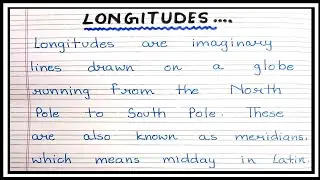 LONGITUDES....
Longitudes are imaginary
lines drawn on a globe
running from the North
Pole to South Pole. These
are also known as meridians.
which means midday in Latin.